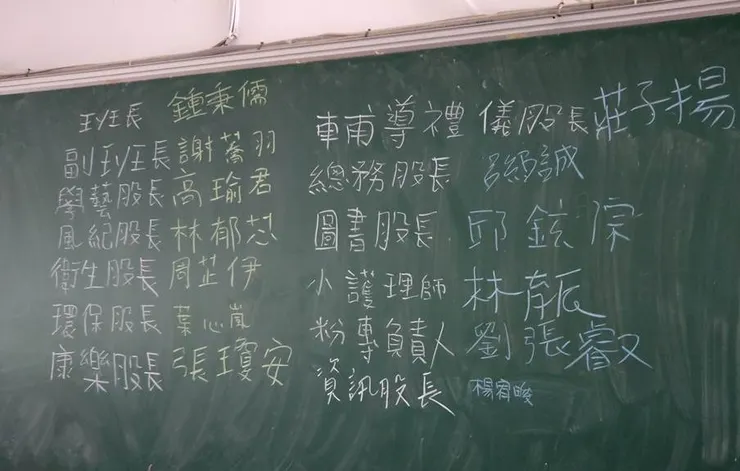 班長 鍾秉儒
副班長 謝蕎羽
學藝股長 高瑜君
風紀股長 林郁芯
衛生股長 周芷伊
環保股長 葉心嵐
康樂股長 張瓊安
輔導禮儀股長 莊子揚
總務股長 誠
圖書股長 邱鉉
小護理師 林
粉專負責人 劉張睿
資訊股長 楊宥畯